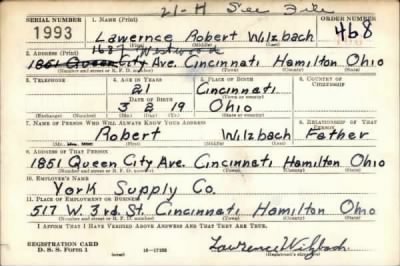 21-H See File
SERIAL NUMBER 1. NAME (Print) ORDER NUMBER
1993 Lawernce Robert Wilzbach 468
(First) (Middle) (Last)
1687 Westwood
2. ADDRESS (Print)
1851 Queen City Ave. Cincinnati Hamilton Ohio
(Number and street or R. F. D. number) (Town) (County) (State)
3. TELEPHONE 4. AGE IN YEARS 5. PLACE OF BIRTH 6. COUNTRY OF CITIZENSHIP
21 Cincinnati
DATE OF BIRTH (Town or county)
3 2 19 Ohio
(Exchange) (Number) (Mo.) (Day) (Yr.) (State or country)
7. NAME OF PERSON WHO WILL ALWAYS KNOW YOUR ADDRESS 8. RELATIONSHIP OF THAT PERSON
Robert Wilzbach Father
(First) (Middle) (Last)
9. ADDRESS OF THAT PERSON
1851 Queen City Ave. Cincinnati Hamilton Ohio
(Number and street or R. F. D. number) (Town) (County) (State)
10. EMPLOYER'S NAME
York Supply Co.
11. PLACE OF EMPLOYMENT OR BUSINESS
517 W. 3rd. St. Cincinnati, Hamilton Ohio
(Number and street or R. F. D. number) (Town) (County) (State)
I AFFIRM THAT I HAVE VERIFIED ABOVE ANSWERS AND THAT THEY ARE TRUE.
REGISTRATION CARD
D. S. S. Form 1 (over) 16-17105 Lawrence Wilzbach
(Registrant's signature)